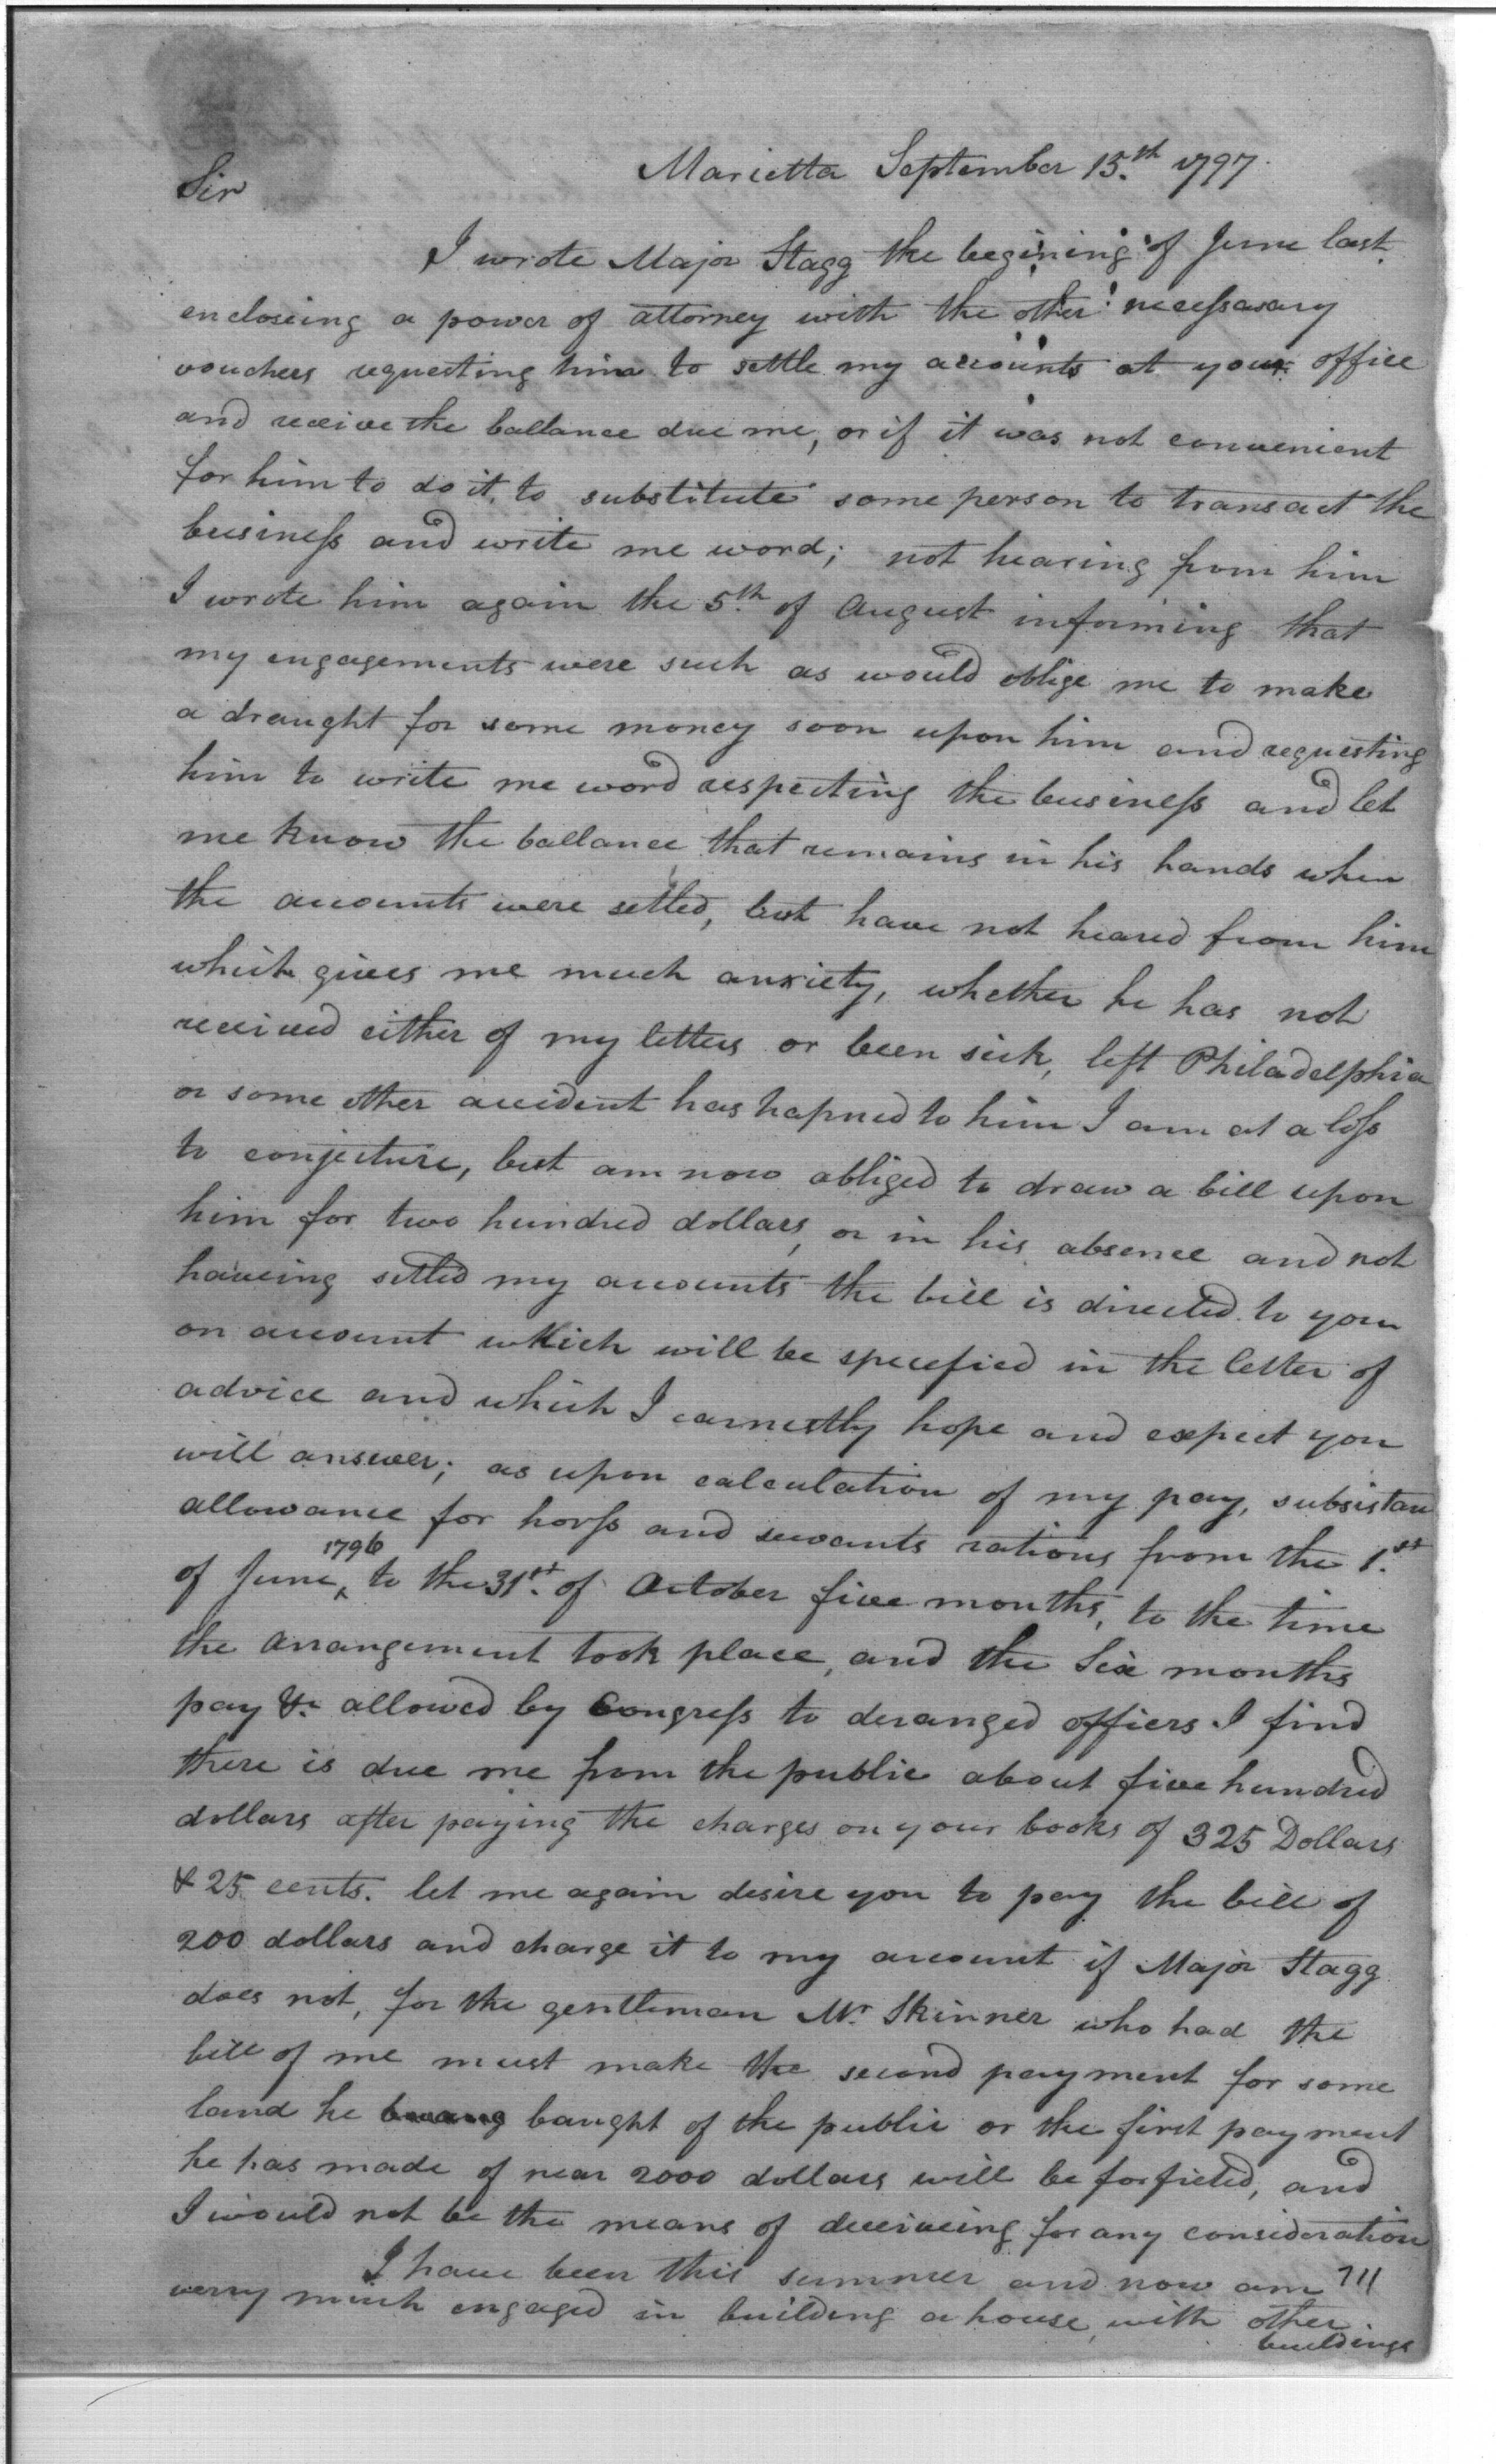 Marietta September 15.th 1797.
Sir
I wrote Major Stagg the begining of June last
encloseing a power of attorney with the other necessasary
vouchers requesting him to settle my accounts at your office
and receive the ballance due me, or if it was not convenient
for him to do it, to substitute some person to transact the
business and write me word; not hearing from him
I wrote him again the 5.th of August informing that
my engagements were such as would oblige me to make
a draught for some money soon upon him and requesting
him to write me word respecting the business and let
me know the ballance that remains in his hands when
the accounts were setled, but have not heared from him
which gives me much anxiety, whether he has not
received either of my letters or been sick, left Philadelphia
or some other accident has hapned to him I am at a loss
to conjecture, but am now obliged to draw a bill upon
him for two hundred dollars, or in his absence and not
haveing setled my accounts the bill is directed to you
on account which will be specefied in the letter of
advice and which I earnestly hope and expect you
will answer; as upon calculation of my pay, subsistan
allowance for horss and servants rations from the 1.st
of June 1796 to the 31st. of October five months, to the time
the arrangement took place, and the Six months
pay &c allowed by Congress to deranged officers I find
there is due me from the public about five hundred
dollars after paying the charges on your books of 325 Dollars
& 25 cents. let me again desire you to pay the bill of
200 dollars and charge it to my account if Major Stagg
does not, for the gentleman Mr. Skinner who had the
bill of me must make the second payment for some
land he baught of the public or the first payment
he has made of near 2000 dollars will be forfieted, and
I would not be the means of deceiveing for any consideration
I have been this summer and now am 711
verry much engaged in building a house, with other
buildings